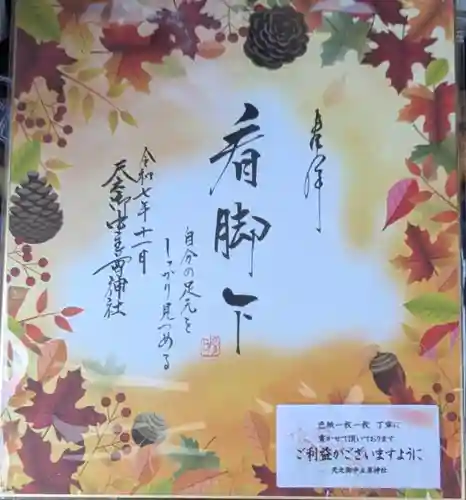 奉拝
看脚下
自分の足元を
しっかり見つめる
令和七年十一月
天之御中主神社
色紙一枚一枚 丁寧に
書かせて頂いております
ご利益がございますように
天之御中主原神社